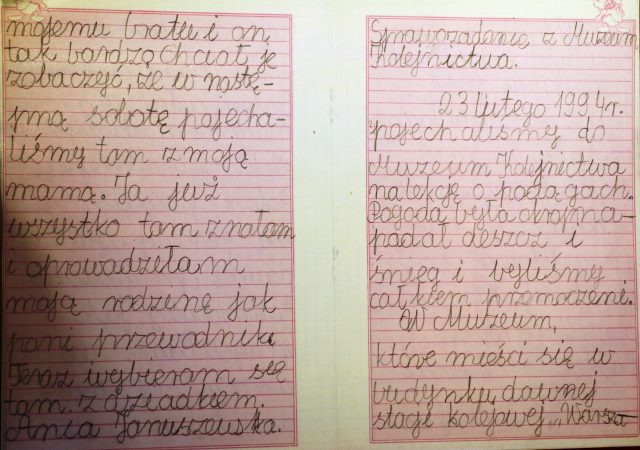 mojemu bratu i on
tak bardzo chciał je
zobaczyć, że w nastę-
pną sobotę pojecha-
liśmy tam z moją
mamą. Ja już
wszystko tam znałam
i oprowadziłam
moją rodzinę jak
pani przewodnik.
Teraz wybieram się
tam z dziadkiem.
Ania Januszewska.
Sprawozdanie z Muzeum
Kolejnictwa.
23 lutego 1994r.
pojechaliśmy do
Muzeum Kolejnictwa
na lekcję o pociągach.
Pogoda była okropna-
padał deszcz i
śnieg i byliśmy
całkiem przemoczeni.
W Muzeum,
które mieści się w
budynku dawnej
stacji kolejowej „Warsza